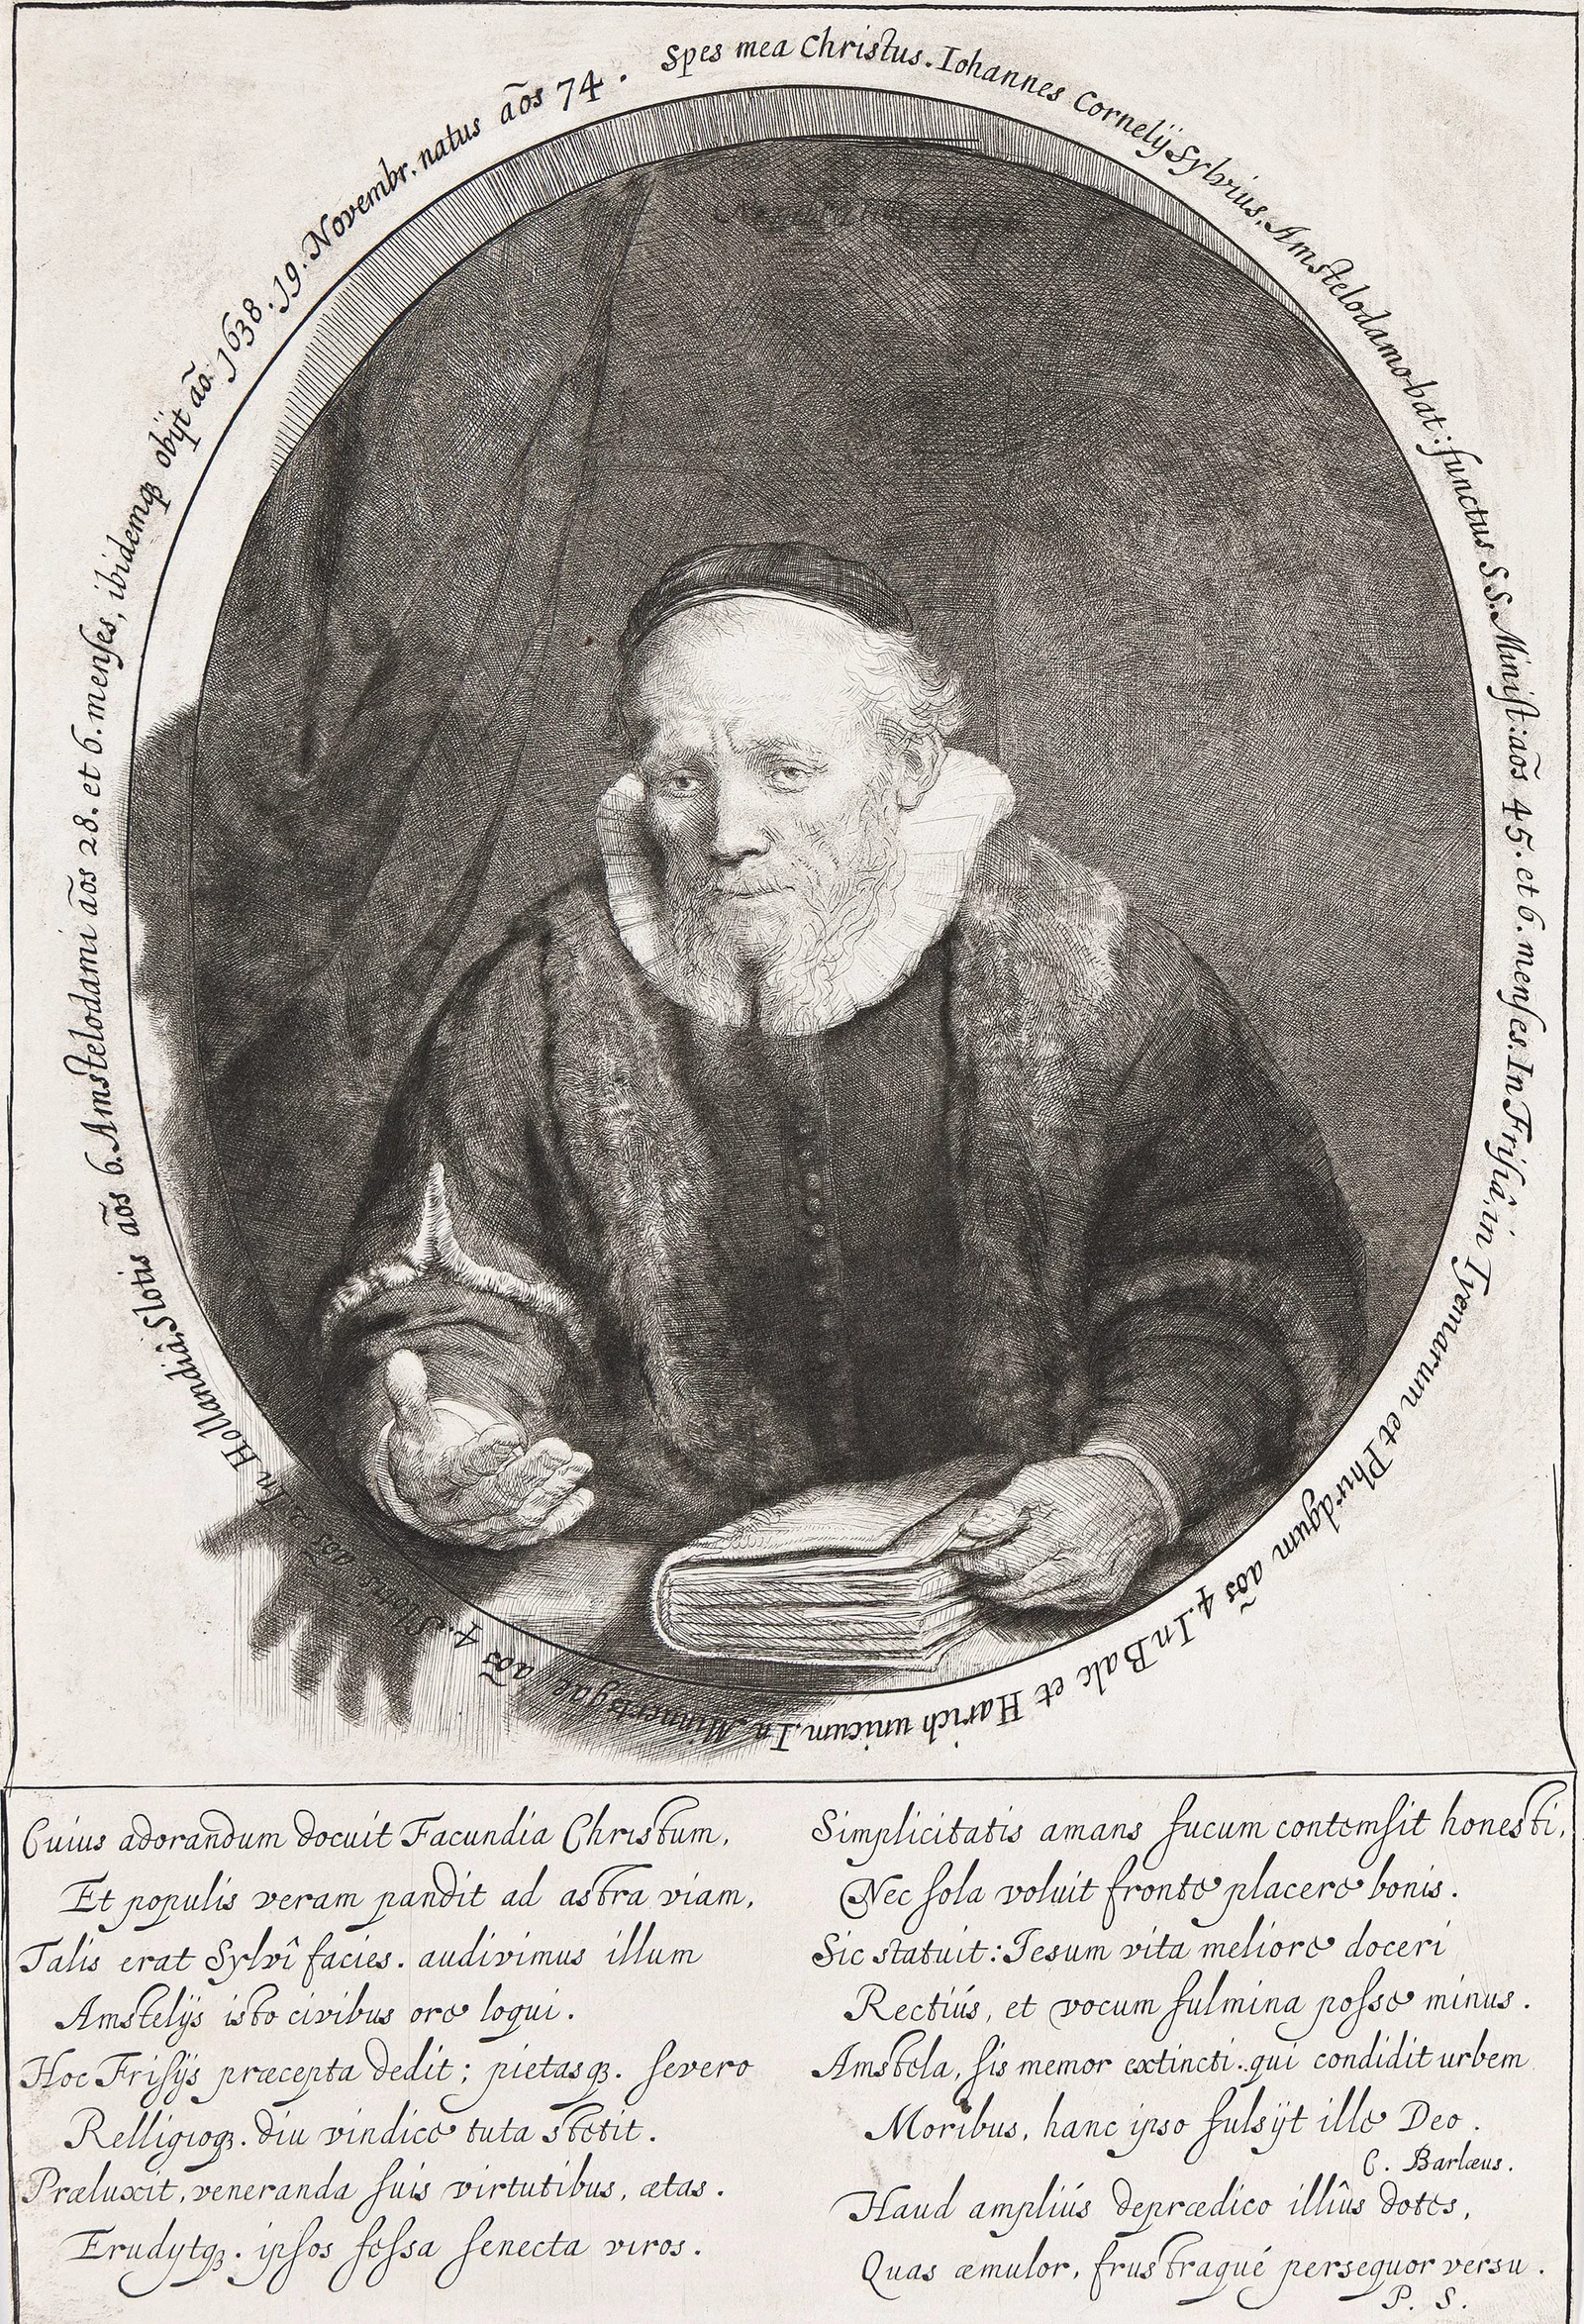 Spes mea Christus. Iohannes Cornelÿ Sylvius, Amstelodamo-bat: functus S S. Minist: aõs 45. et 6. menses. In Frisiâ, in Tyemarum et Phirdgum aõs 4. In Balc et Harich unicum. In Minnertsgae aõs 4. Slotis aõs 2. In Hollandiâ, Slotis aõs 6. Amstelodami aõs 28. et 6. menses, ibidemq3 obÿt ão 1638. 19. Novembr. natus aõs 74.
Cuius adorandum docuit Facundia Christum,
Et populis veram pandit ad astra viam,
Talis erat Sylvî facies. audivimus illum
Amstelÿs isto civibus ore loqui.
Hoc Frisÿs præcepta dedit; pietasq3. severo
Relligioq3. diu vindice tuta stetit.
Præluxit, veneranda suis virtutibus, ætas.
Erudytq3. ipsos fessa senecta viros.
Simplicitatis amans fucum contemsit honesti,
Nec sola voluit fronte placere bonis.
Sic statuit: Iesum vita meliore doceri
Rectiús, et vocum fulmina posse minus.
Amstela, sis memor extincti. qui condidit urbem
Moribus, hanc ipso fulsÿt ille Deo.
C. Barlæus.
Haud ampliús deprædico illîus dotes,
Quas æmulor, frustraqué persequor versu.
P. S.